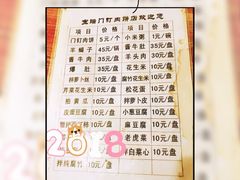 宝瑞门钉肉饼店欢迎您
项目 价格 项目 价格
门钉肉饼 5元/个 小米粥 1元/碗
羊蝎子 45元/锅 酱牛肚 35元/盘
酱牛肉 35元/盘 羊头肉 30元/盘
爆肚 35元/盘 花生米 10元/盘
拌萝卜丝 10元/盘 腐竹花生米 10元/盘
芹菜花生米 10元/盘 松花蛋 10元/盘
拍黄瓜 10元/盘 拌萝卜皮 10元/盘
皮蛋豆腐 10元/盘 小葱豆腐 10元/盘
10元/盘 麻豆腐 10元/盘
10元/盘 老虎菜 10元/盘
10元/盘 拌白菜心 10元/盘
拌炖腐竹 10元/盘
2018